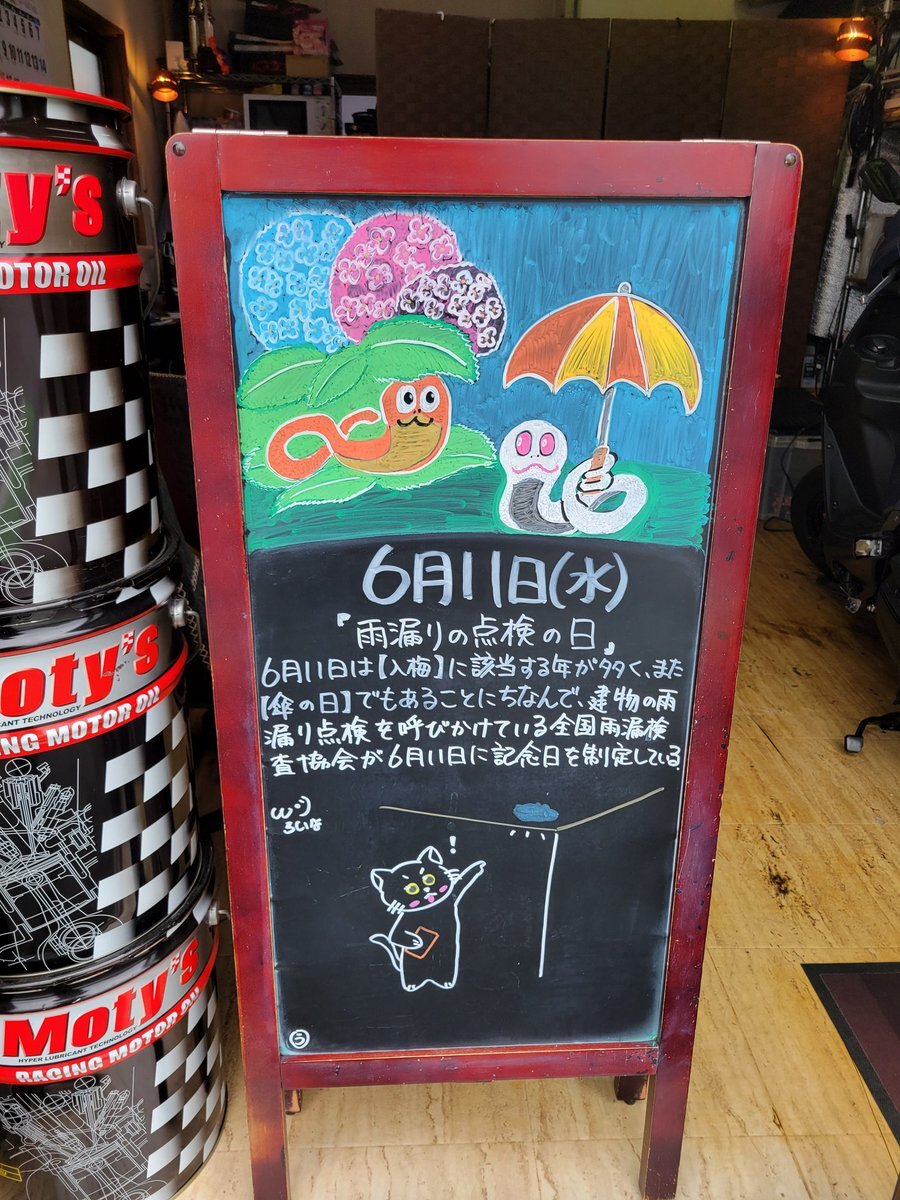 6月11日(水)
『雨漏りの点検の日』
6月11日は【入梅】に該当する年が多く、また
【傘の日】でもあることにちなんで、建物の雨
漏り点検を呼びかけている全国雨漏検
査協会が6月11日に記念日を制定している。
らいな
!
う
ty's
MOTOR OIL
Moty's
LUBRICANT TECHNOLOGY
ING MOTOR OIL
Moty's
HYPER LUBRICANT TECHNOLOGY
RACING MOTOR OIL